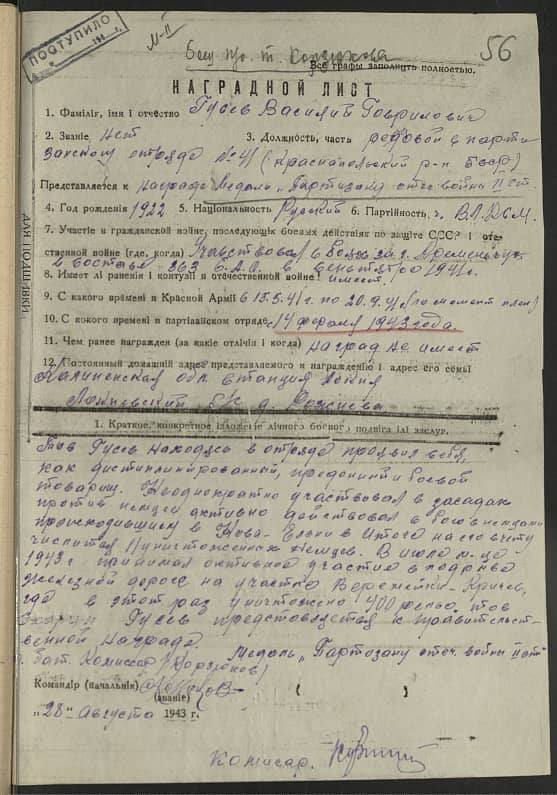 ПОСТУПИЛО
М-II
56
Все графы заполнить полностью.
НАГРАДНОЙ ЛИСТ
1. Фамілія, імя і отчество Гусев Василий Гаврилович
2. Званіе Нет 3. Должность, часть рядовой в парти
занском отряде № 41 (Краснопольский р-н БССР)
Представляется к награде Медаль „Партизану отеч. войны" II ст.
4. Год рождения 1922 5. Національность Русский 6. Партійность ч. ВЛКСМ.
7. Участіе в гражданской войне, последующіх боевых действіях по защіте СССР і оте-
чественной войне (где, когда) Участвовал в боях за г. Кременьчук
в составе 363 в сентябре 1941 г.
8. Имеет лі раненія і контузіі в отечественной войне имеет
9. С какого времені в Красной Арміі с 15.5.41 г. по 20.9.41 (по момент плен)
10. С кокого времені в партізанском отряде с 14 февраля 1943 года.
11. Чем ранее награжден (за какіе отлічія і когда) Наград не имеет
12. Постоянный домашній адрес представляемого к награжденію і адрес его семьі
Калининская обл. станция
р-н д.
ДЛЯ ПОДШИВКИ
1. Краткое, конкретное ізложеніе лічного боевого подвіга ілі заслуг.
Тов Гусев находясь в отряде проявил себя,
как дисциплинированный, преданный и боевой
товарищ. Неоднократно участвовал в засадах
против немцев активно действовал в бою с немцами
происходившем в Нова-Ельни в итого на его счету
числится 11 уничтоженных немцев. В июле м-це
1943 г. принимал активное участие в подрыве
железной дороге на участке Веремейки-Кричев,
где в этот раз уничтожено 400 рельс. тов
Гусев представляется к правительст-
венной награде.
Медаль „Партизану отеч. войны II ст"
бат. Комиссар (Корзунов)
Командір (начальнік)
(званіе)
„28" Августа 1943 г.
Комисар.